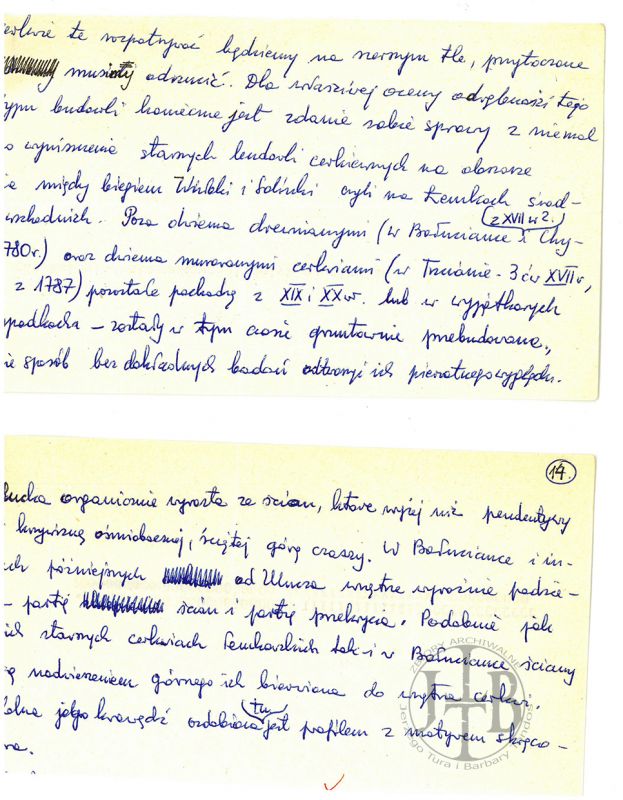 te rozpatrywać będziemy na szerszym tle, przytoczone
musiały odrzucić. Dla właściwej oceny odrębności tego
typu budowli konieczne jest zdanie sobie sprawy z niemal
o wyniszczenia starych budowli cerkiewnych na obszarze
między biegiem Wisłoki i Solinki czyli na Łemkach środ-
wschodnich. Poza dwiema drewnianymi (w Bałuciance (z XVII w?.) i Chy-
780r.) oraz dwiema murowanymi cerkwiami (w Trzcianie - 3ćw XVII w,
z 1787) pozostałe pochodzą z XIX i XX w. lub w wyjątkowych
padkach – zostały w tym czasie gruntownie przebudowane,
ie sposób bez dokładnych badań odtworzyć ich pierwotnego wyglądu.
14.
organicznie wyrasta ze ścian, które wyżej niż pendentywy
krzywiznę ośmiobocznej, ściętej górą czaszy. W Bałuciance i in-
ch późniejszych od Ulucza wnętrze wyraźnie podzie-
– partię ścian i partię przekrycia. Podobnie jak
ich starych cerkwiach łemkowskich tak i w Bałuciance ściany
ę nadwieszeniem górnego ich bierwiona do wnętrza cerkwi.
olna jego krawędź ozdobiona tu jest profilem z motywem skręco-
ra.
ZBIORY ARCHIWALNE
JTB
Jerzego Tura i Barbary Tondos